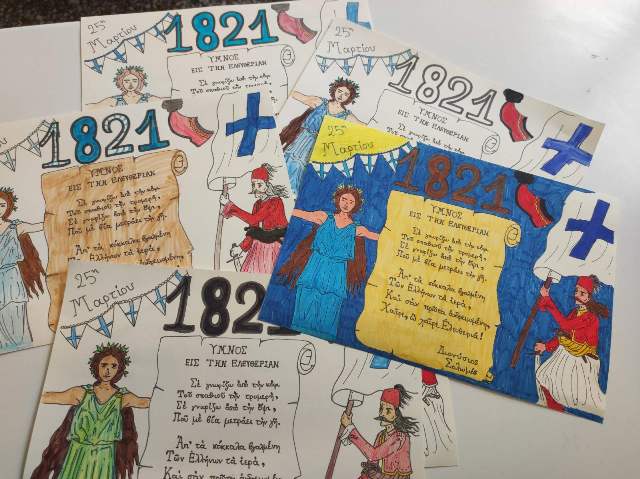 25η
Μαρτίου
1821
ΥΜΝΟΣ
ΕΙΣ ΤΗΝ ΕΛΕΥΘΕΡΙΑΝ
Σὲ γνωρίζω ἀπὸ τὴν κόψη
Τοῦ σπαθιοῦ τὴν τρομερή,
25η
Μαρτίου
1821
ΥΜΝΟΣ
ΕΙΣ ΤΗΝ ΕΛΕΥΘΕΡΙΑΝ
Σὲ γνωρίζω ἀπὸ τὴν κόψη
1821
ΥΜΝΟΣ
ΕΙΣ ΤΗΝ ΕΛΕΥΘΕΡΙΑΝ
Σὲ γνωρίζω ἀπὸ τὴν κόψη
Τοῦ σπαθιοῦ τὴν τρομερή,
Σὲ γνωρίζω ἀπὸ τὴν ὄψη,
Ποὺ μὲ βία μετράει τὴν γῆ.
Απ' τὰ κόκκαλα βγαλμένη
Τῶν Ἑλλήνων τὰ ἱερά,
25η
Μαρτίου
1821
ΥΜΝΟΣ
ΕΙΣ ΤΗΝ ΕΛΕΥΘΕΡΙΑΝ
Σὲ γνωρίζω ἀπὸ τὴν κόψη
Τοῦ σπαθιοῦ τὴν τρομερή,
Σὲ γνωρίζω ἀπὸ τὴν ὄψη,
Ποὺ μὲ βία μετράει τὴν γῆ.
Απ' τὰ κόκκαλα βγαλμένη
Τῶν Ἑλλήνων τὰ ἱερά,
Καὶ σὰν πρῶτα ἀνδρειωμένη
Χαῖρε, ὦ χαῖρε Ἐλευθεριά!
Διονύσιος
Σολωμός
25η
Μαρτίου
1821
ΥΜΝΟΣ
ΕΙΣ ΤΗΝ ΕΛΕΥΘΕΡΙΑΝ
Σὲ γνωρίζω ἀπὸ τὴν κόψη
Τοῦ σπαθιοῦ τὴν τρομερή,
Σὲ γνωρίζω ἀπὸ τὴν ὄψη,
Ποὺ μὲ βία μετράει τὴν γῆ.
Απ' τὰ κόκκαλα βγαλμένη
Τῶν Ἑλλήνων τὰ ἱερά,
Καὶ σὰν πρῶτα ἀνδρειωμένη